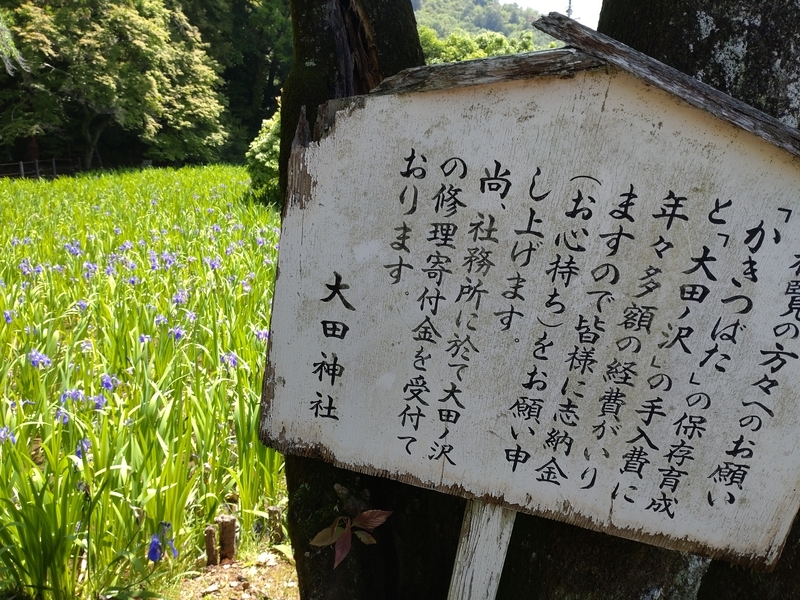 拝観の方々へのお願い
「かきつばた」の保存育成
と「大田ノ沢」の手入費に
年々多額の経費がいり
ますので皆様に志納金
(お心持ち)をお願い申
し上げます。
尚、社務所に於て大田ノ沢
の修理寄付金を受付て
おります。
大田神社